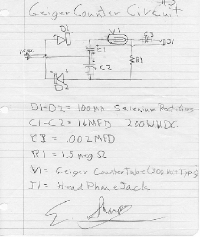 Geiger Counter Circuit
D1
V1
R2
J1
C1
R1
C2
D2
D1-D2 = 100 ma Selenium Rectifiers
C1-C2 = 16MFD 200WVDC
C3 = .002MFD
R1 = 1.5 meg Ω
V1 = Geiger Counter Tube (300 Volt Type)
J1 = Head Phone Jack